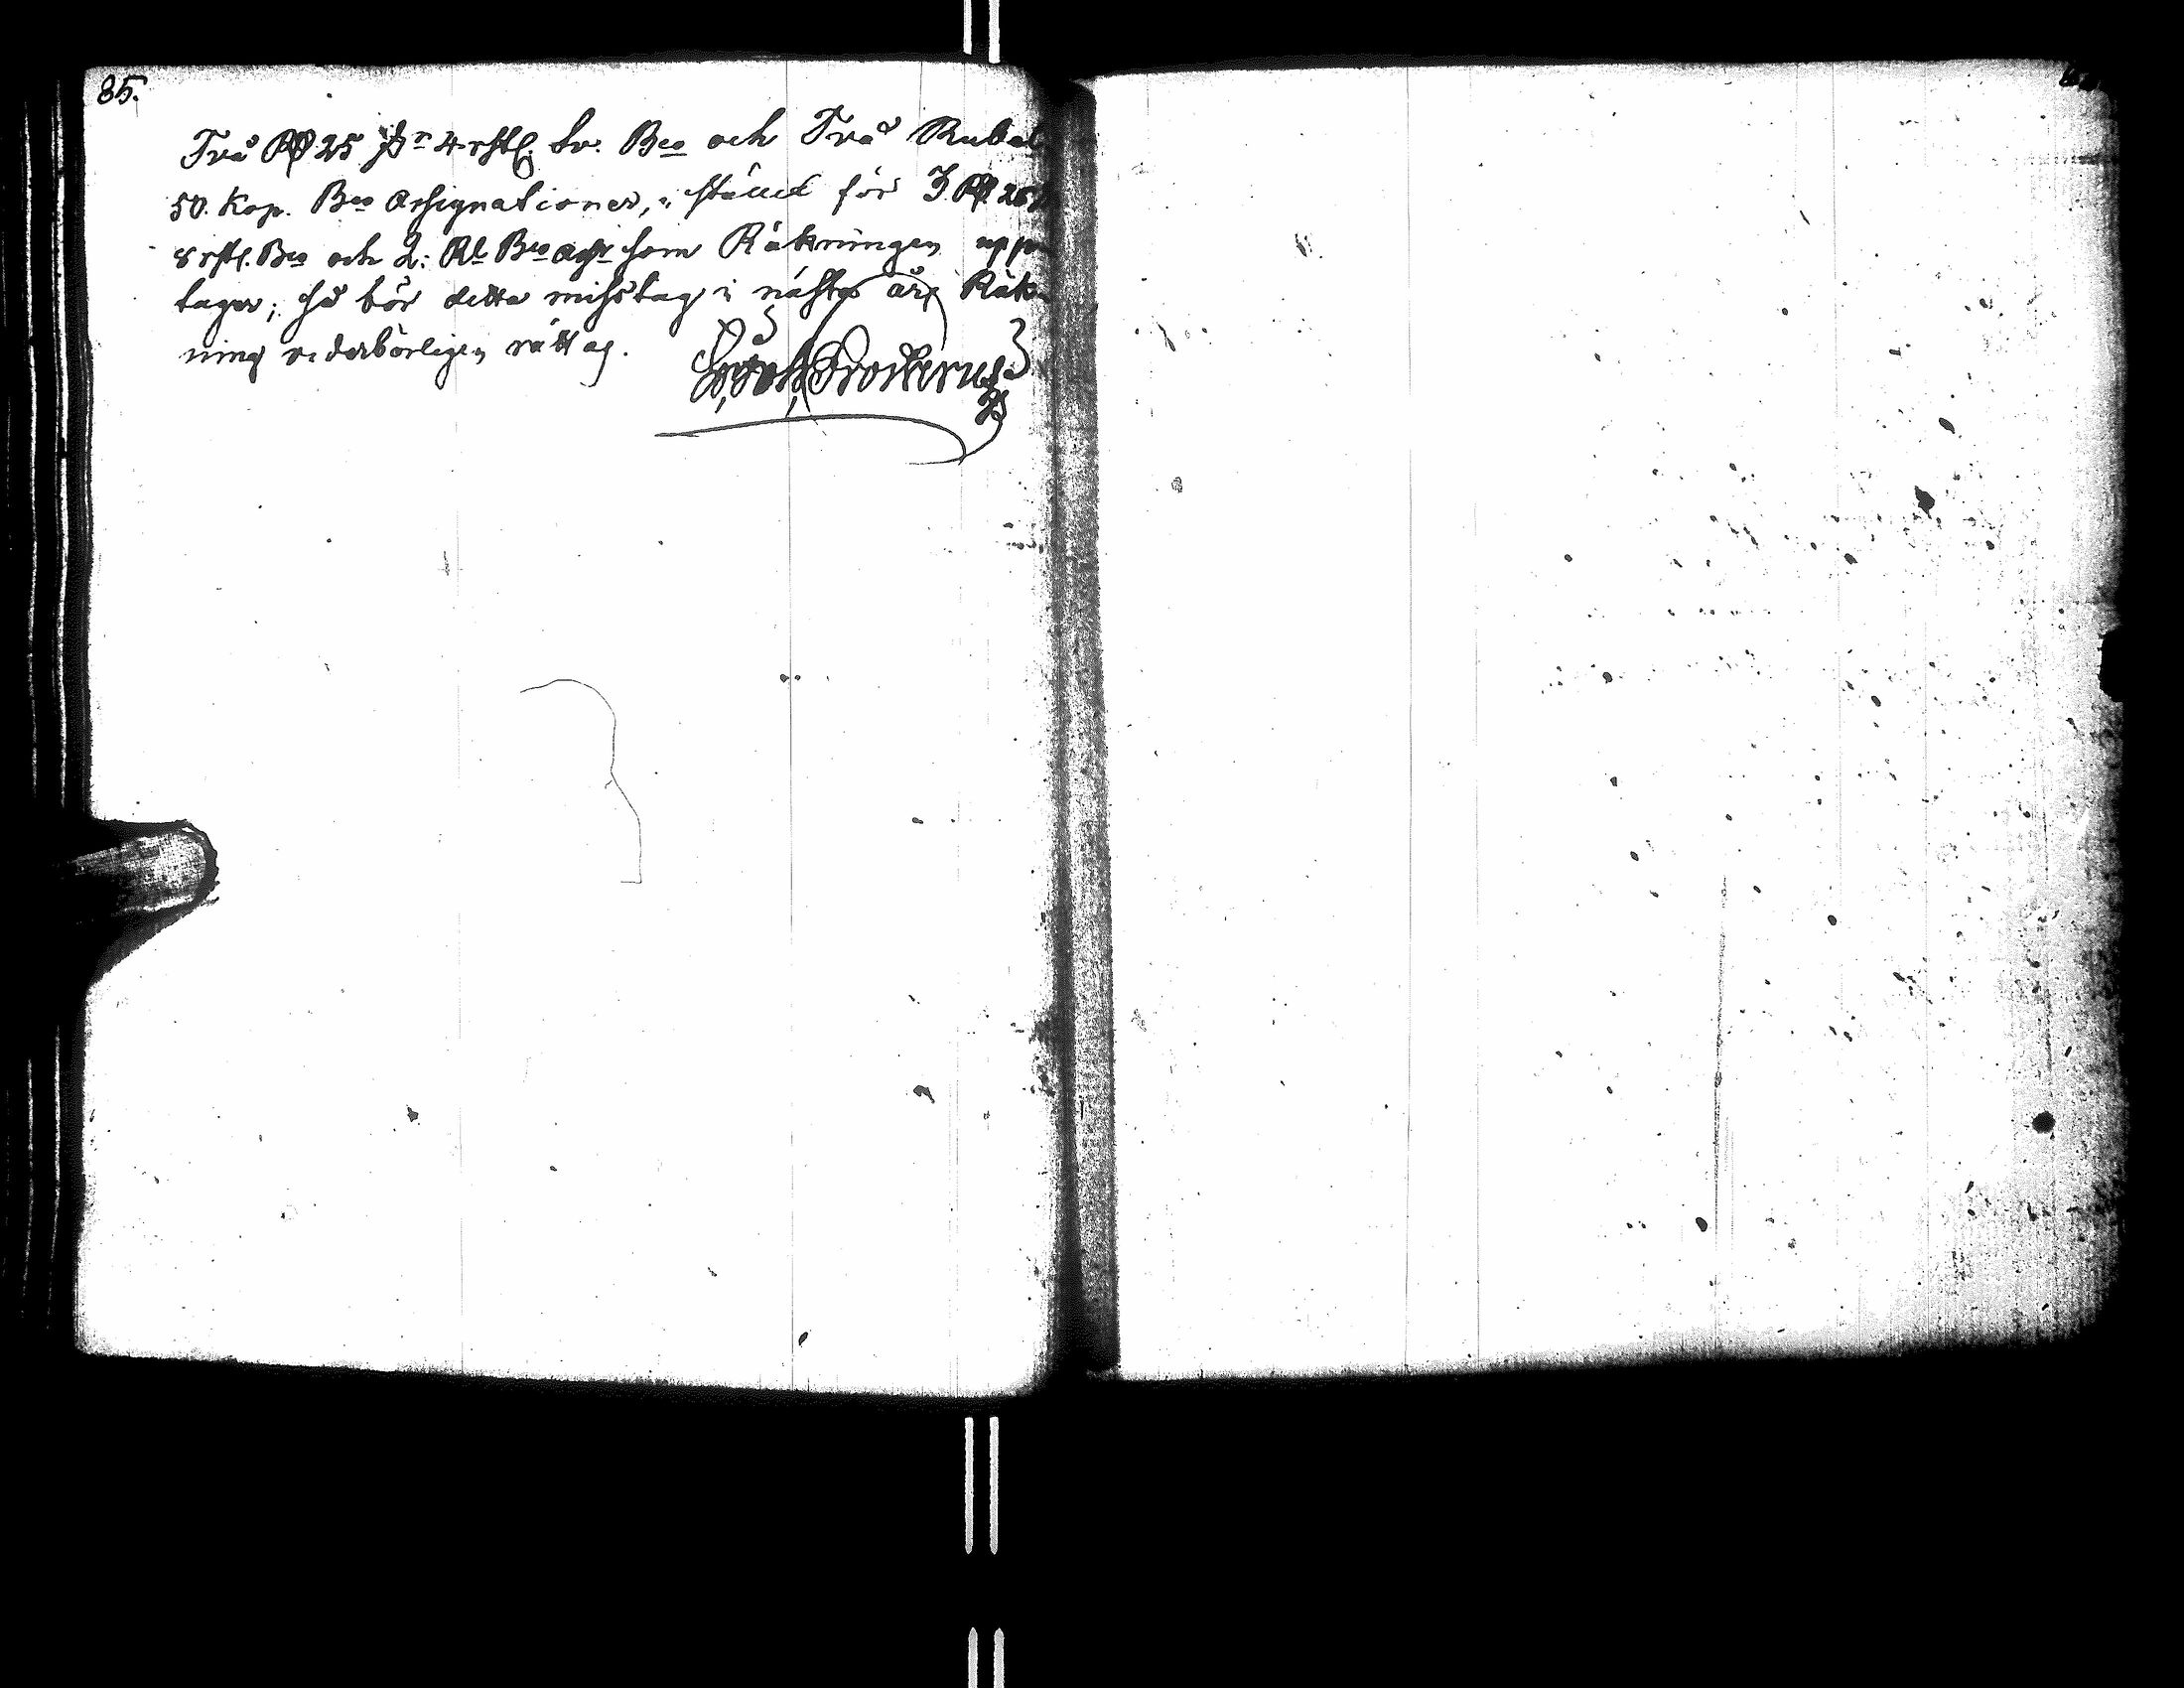 85.
Två Rd 25 s: 4 rst. Sv. Bco och Två Rubel
50. Kop. Bco Assignationer, i stället för 3 Rd 26
8 rst. Bco och 2: Rl Bco Ass som Räkningen upp
tager; så bör detta misstag i nästa års Räk-
ning vederbörligen rättas.